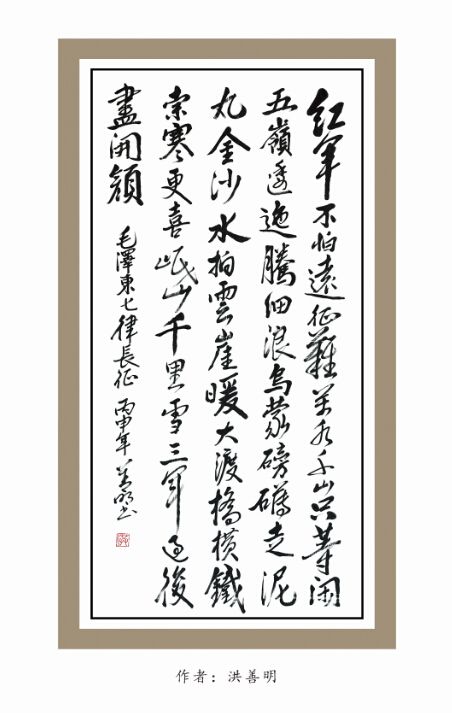 红军不怕遠征難萬水千山只等閑
五嶺逶迤騰细浪烏蒙磅礴走泥
丸金沙水拍雲崖暖大渡橋横鐵
索寒更喜岷山千里雪三军过後
盡開顔
毛澤東七律長征 丙申年 善明书
作者：洪善明